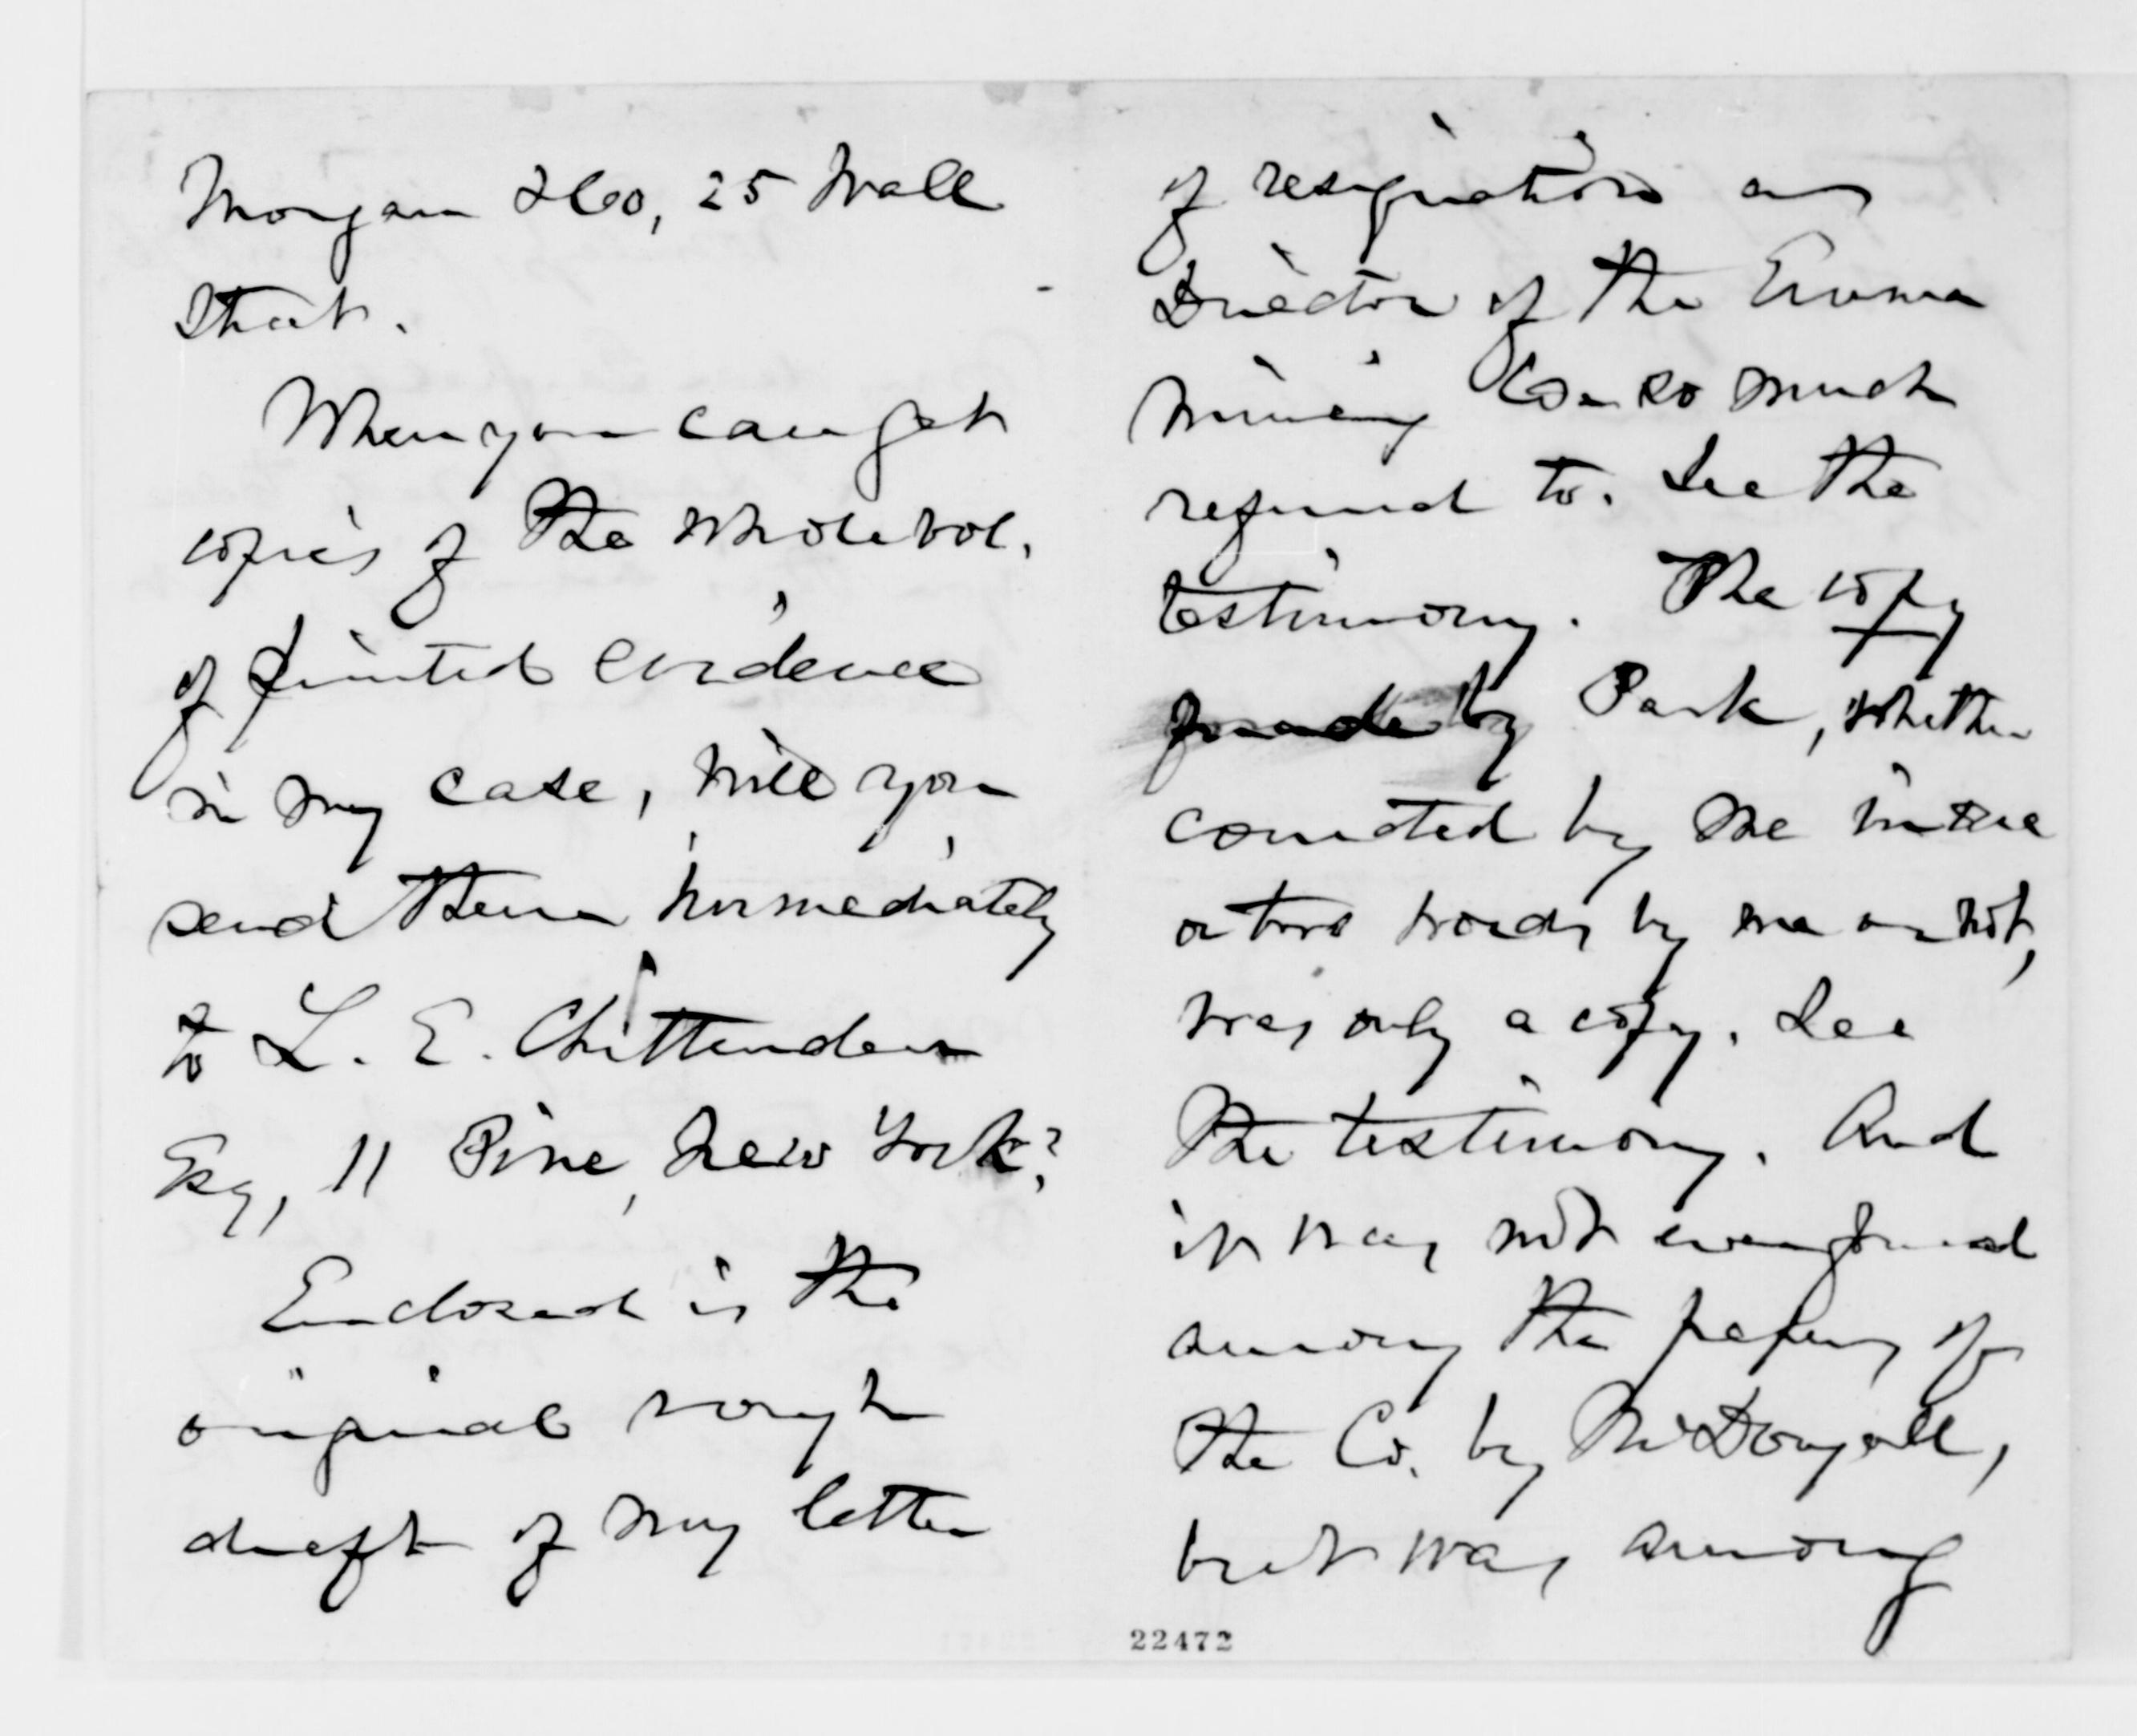 Morgan & Co, 25 Wall
Street.
When you can get
copies of the whole vol.
of printed evidence
in my case, will you
send them immediately
to L. E. Chittenden
Esq, 11 Pine, New York?
Enclosed is the
original rough
draft of my letter
of resignation as
Director of the Emma
Mining Co. so much
referred to. See the
testimony. The copy
made by Park, whether
corrected by me in one
or two words by me or not,
was only a copy. See
the testimony. And
it was not even found
among the papers of
the Co. by McDougall,
but was among
22472